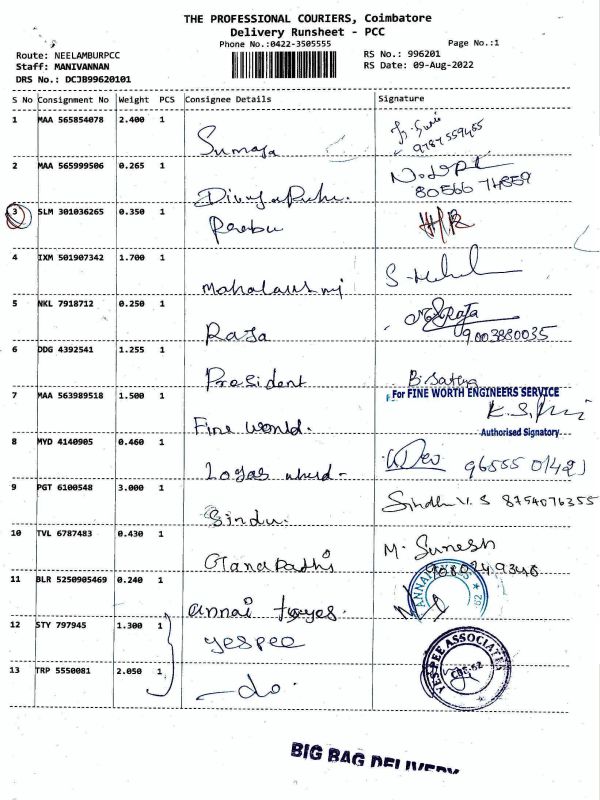 THE PROFESSIONAL COURIERS, Coimbatore
Delivery Runsheet - PCC
Phone No.:0422-3505555
Page No.:1
Route: NEELAMBURPCC
RS No.: 996201
Staff: MANIVANNAN
RS Date: 09-Aug-2022
DRS No.: DCJB99620101
S No Consignment No Weight PCS Consignee Details Signature
1 MAA 565854078 2.400 1
9787559455
2 MAA 565999506 0.265 1
80566 74859
3 SLM 301036265 0.350 1
4 IXM 501907342 1.700 1
Mahalaxmi
5 NKL 7918712 0.250 1
Raja
Raja
9003880035
6 DDG 4392541 1.255 1
President
7 MAA 563989518 1.500 1
For FINE WORTH ENGINEERS SERVICE
Fine world.
Authorised Signatory
8 MYD 4140905 0.460 1
Dev
9 PGT 6100548 3.000 1
Sindhu V.S 8754076355
Sindu.
10 TVL 6787483 0.430 1
M. Sunesh
11 BLR 5250905469 0.240 1
annai toyes.
12 STY 797945 1.300 1
yespee
13 TRP 5550081 2.050 1
YESPEE ASSOCIATES
CBE-62
do.
BIG BAG DELIVERY